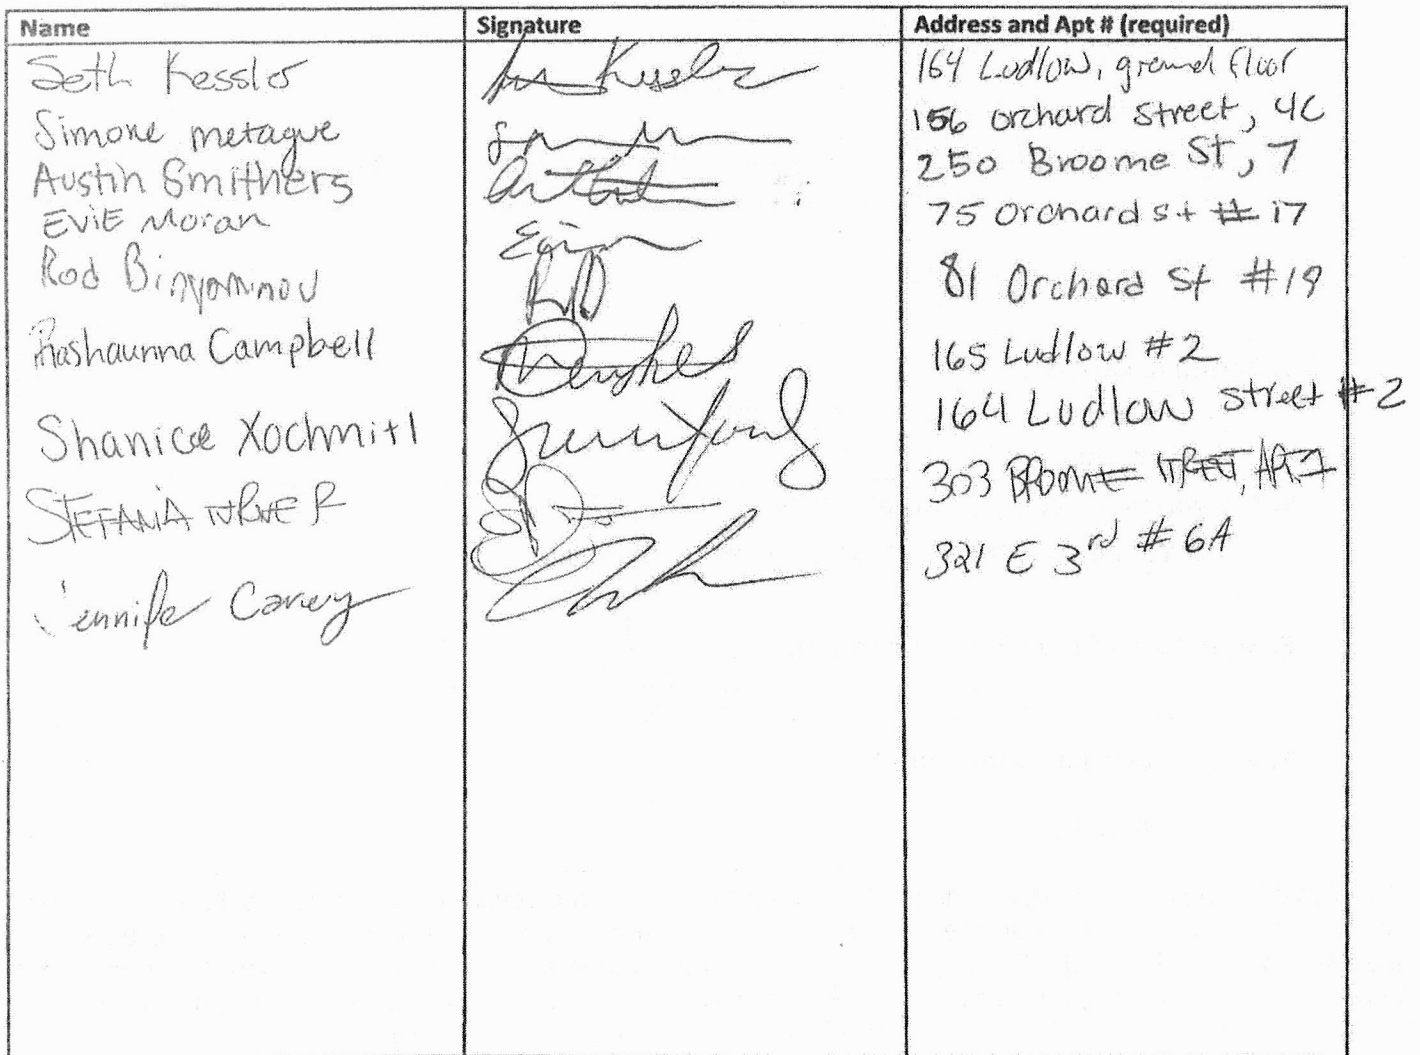 Name Signature Address and Apt # (required)
Seth Kessler Kessler 164 Ludlow, ground floor
Simone metague 156 orchard street, 4C
Austin Smithers 250 Broome St, 7
EviE Moran 75 Orchard st # 17
Rod Binyaminov 81 Orchard St #19
Rashaunna Campbell 165 Ludlow #2
Shanice Xochmitl 164 Ludlow street #2
STEFANIA TURNER 303 BROOME STREET, APT. 7
Jennifer Carey 321 E 3rd # 6A